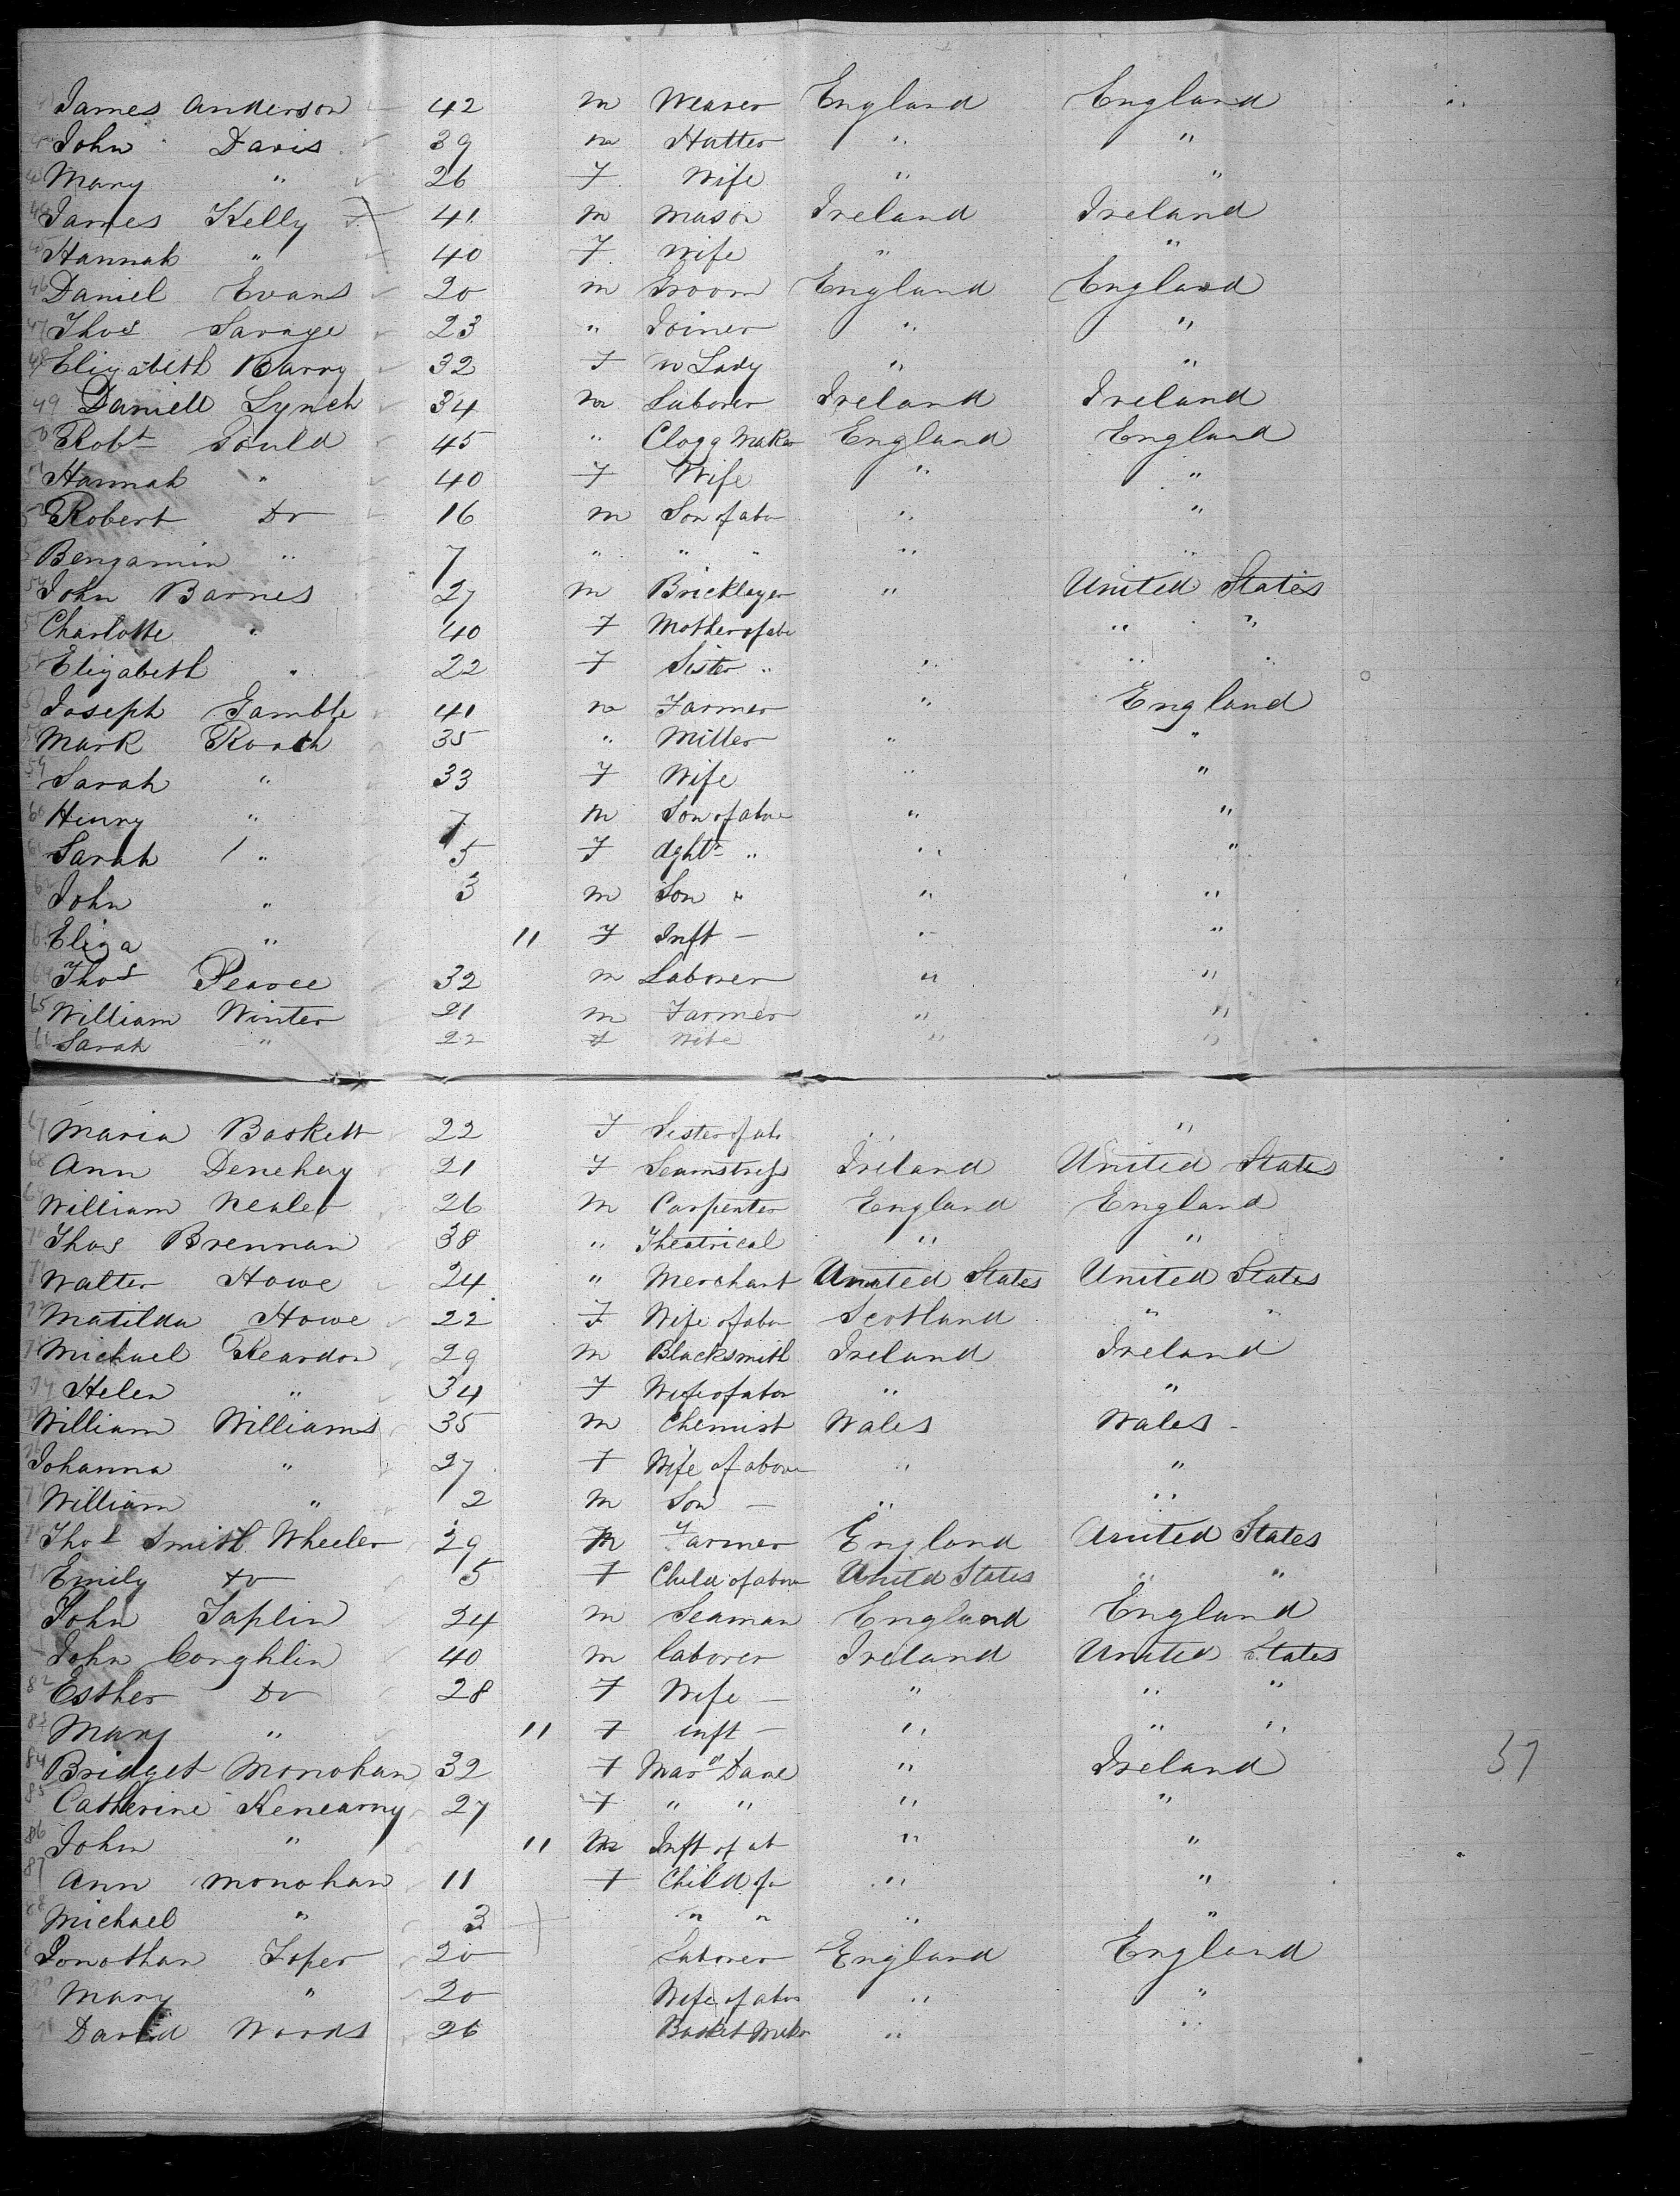 James Anderson 42 m Weaver England England
John Davis 39 m Hatter " "
43 Mary " 26 F Wife " "
44 James Kelly 41 m Mason Ireland Ireland
45 Hannah " 40 F Wife " "
46 Daniel Evans 20 m Groom England England
47 Thos Savage 23 " Joiner " "
48 Elizabeth Barry 32 F W Lady " "
49 Daniell Lynch 34 m Laborer Ireland Ireland
50 Robt Gould 45 " Clogg Maker England England
51 Hannah " 40 F Wife " "
52 Robert Do 16 m Son of abv " "
Bengamin " 7 " " " " "
54 John Barnes 27 m Bricklayer " United States
55 Charlotte " 40 F Mother of abv " "
56 Elizabeth " 22 F Sister " " " "
57 Joseph Gamble 41 m Farmer " England
58 Mark Roach 35 " Miller " "
59 Sarah " 33 F Wife " "
60 Henry " 7 m Son of above " "
61 Sarah " 5 F dghtr " " "
62 John " 3 m Son " " "
63 Eliza " 11 F Inft — " "
64 Thos Pearce 32 m Laborer " "
65 William Winter 21 m Farmer " "
66 Sarah " 22 F Wife " "
67 Maria Baskett 22 F Sister of abv " "
68 Ann Denehay 21 F Seamstress Ireland United States
69 William 26 m Carpenter England England
70 Thos Brennan 38 " Theatrical " "
71 Walter Howe 24 " Merchant United States United States
72 Matilda Howe 22 F Wife of abov Scotland " "
73 Michael Reardon 29 m Blacksmith Ireland Ireland
74 Helen " 34 F Wife of abov " "
William Williams 35 m Chemist Wales Wales -
76 Johanna " 27 F Wife of above " "
77 William " 2 m Son — " "
78 Thos Smith Wheeler 29 m Farmer England United States
79 Emily Do 5 F Child of above United States " "
John Taplin 24 m Seaman England England
John Coughlin 40 m laborer Ireland United States
82 Esther Do 28 F Wife — " " "
83 Mary " 11 F inft — " " "
84 Bridget Monohan 32 F Mard Dame " Ireland 57
85 Catherine Kenearny 27 F " " " "
86 John " 11 m Inft of ab " "
87 Ann Monohan 11 F Child of " "
88 Michael " 3 " " " "
Jonothan Toper 20 Laborer England England
90 Mary " 20 Wife of abov " "
91 David Woods 26 Basket Maker " "